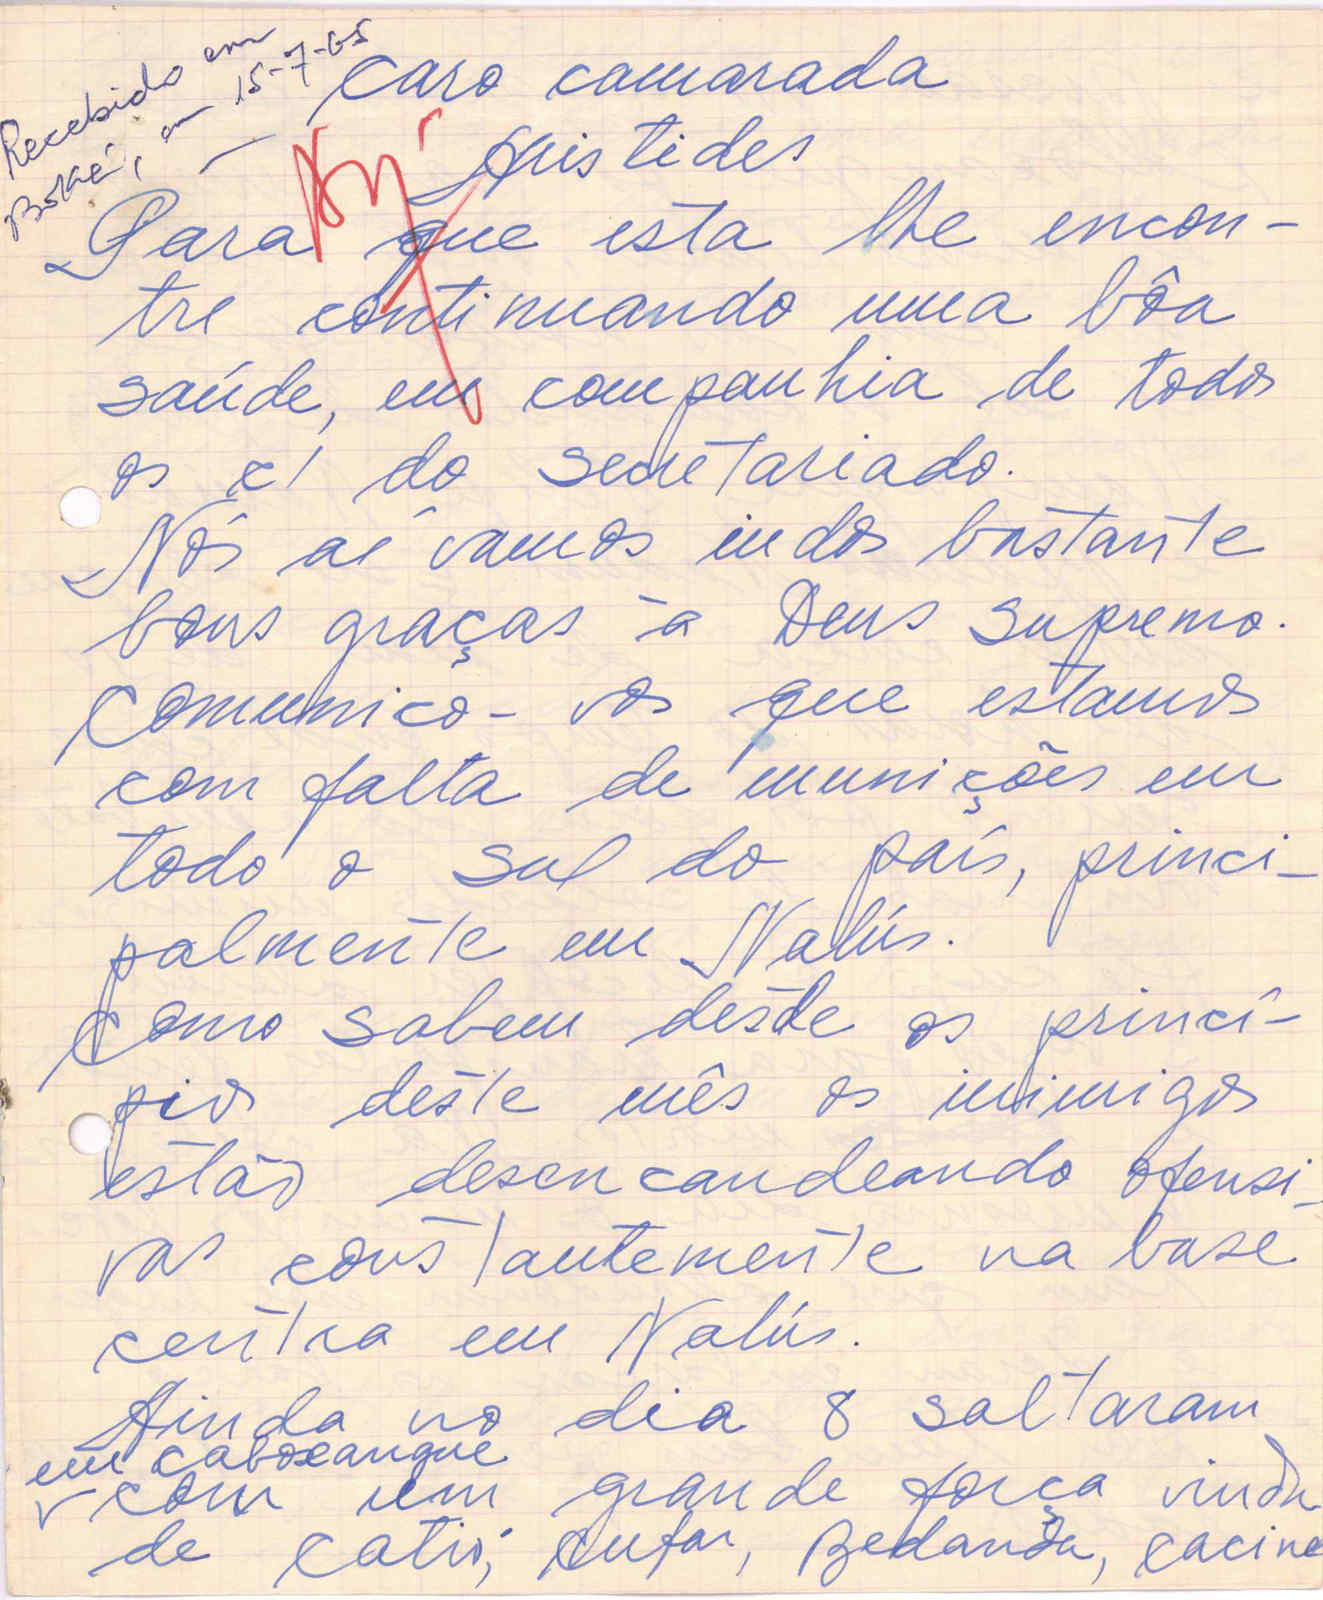 Recebido em
Boké, em 15-7-65
Caro camarada
Aristides
Para que esta lhe encon-
tre continuando uma bôa
saúde, em companhia de todos
os c/ do secretariado.
Nós aí vamos indos bastante
bons graças à Deus Supremo.
Comunico-vos que estamos
com falta de munições em
todo o Sul do país, princi-
palmente em Nalús.
Como sabem desde os princí-
pios deste mês os inimigos
estão desencandeando ofensi-
vas constantemente na base
centra em Nalús.
Ainda no dia 8 saltaram
em caboxangue
com um grande força vinda
de Catió, Cufar, Bedanda, Cacine